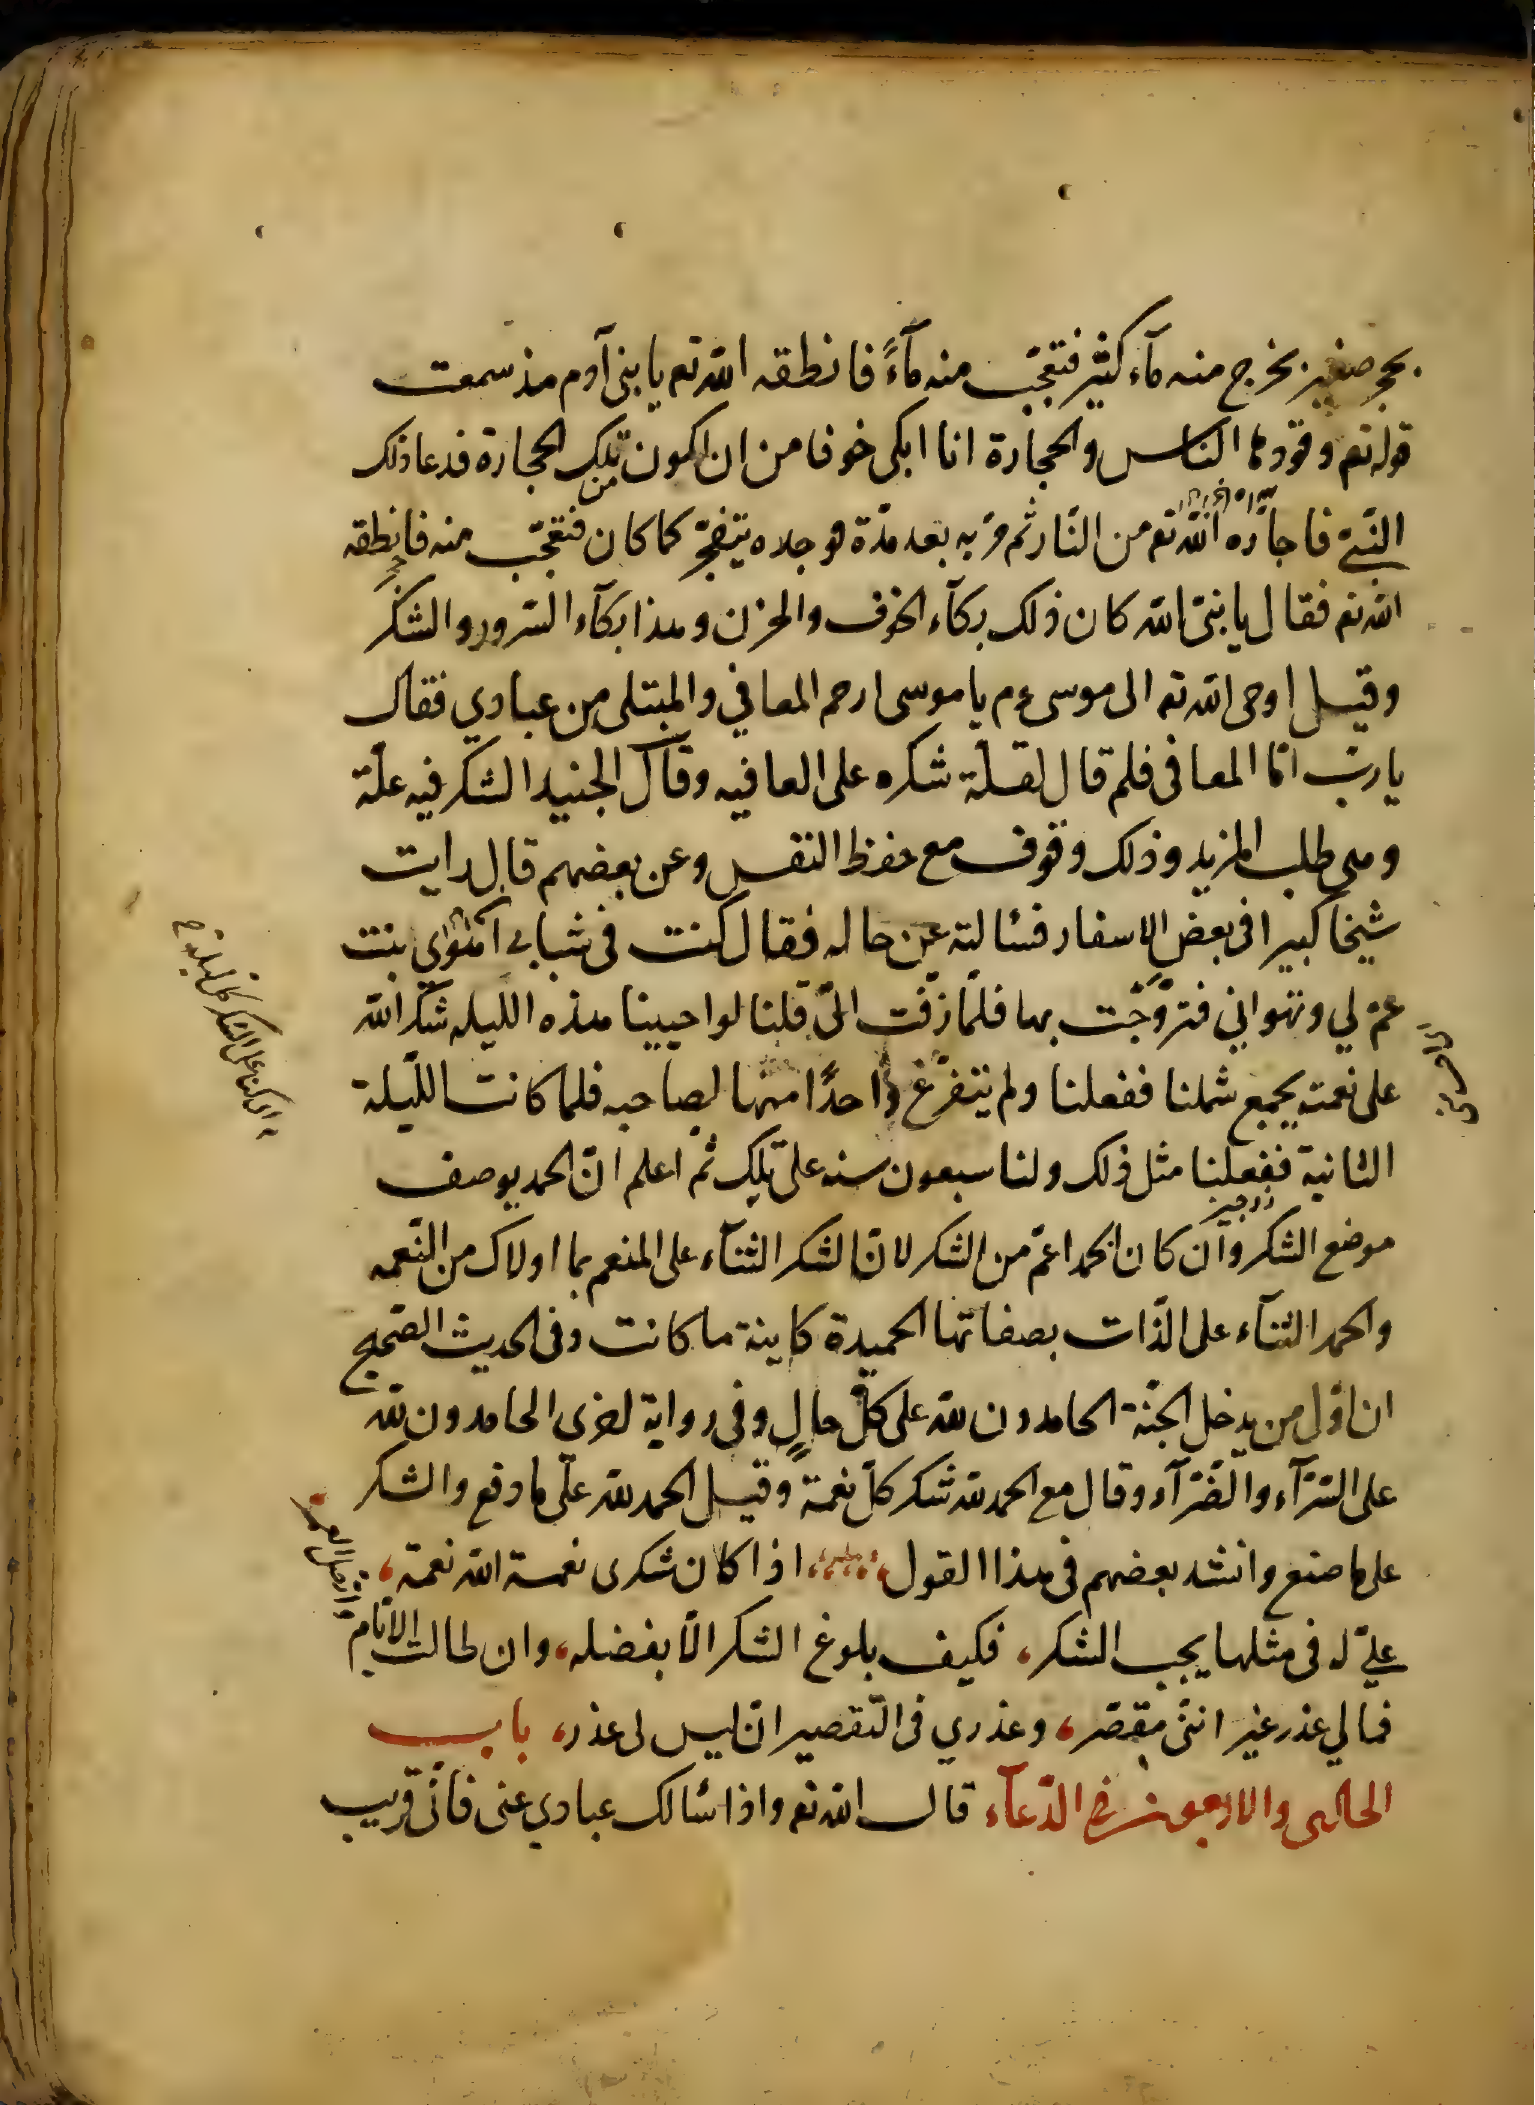 بحجر صغير يخرج منه مآء كثير فتعجّب منه مآءً فانطقه الله تع يا بنى آدم مذ سمعت
قوله تع وقودها الناس والحجارة انا ابكى خوفا من ان اكون من تلك الحجارة فدعا ذلك
النبيّ فاجاره الله تع من النّار ثم مرّ به بعد مدّة فوجده يتفجّر كما كان فتعجّب منه فانطقه
الله تع فقال يا نبىّ الله كان ذلك بكآء الخوف والحزن وهذا بكآء السّرور والشكر
وقيل اوحى الله تع الى موسى عم يا موسى ارحم المعافي والمبتلى من عبادي فقال
يا ربّ امّا المعافى فلم قال لقلّة شكره على العافيه وقال الجنيد الشكر فيه علّة
وهى طلب المزيد وذلك وقوف مع حفظ النفس وعن بعضهم قال رايت
شيخا كبيرا فى بعض الاسفار فسئالته عن حاله فقال كنت فى شبابى اهوى بنت
عمّ لي وتهواني فتزوّجت بها فلمّا زفّت الىّ قلنا لو احيينا هذه الليله شكر الله
على نعمته بجمع شملنا ففعلنا ولم يتفرّغ واحدًا منها لصاحبه فلما كانت اللّيلة
الثانية ففعلنا مثل ذلك ولنا سبعون سنه على تلك ثمّ اعلم انّ الحمد يوصف
موضع الشكر وان كان الحمد اعمّ من الشكر لانّ الشكر الثنآء على المنعم بما اولاك من النّعمه
والحمد الثنآء على الذّات بصفاتها الحميدة كاينة ما كانت وفى الحديث الصّحيح
ان اوّل من يدخل الجنّة الحامدون لله على كلّ حالٍ وفى رواية اخرى الحامدون لله
على السّرّآء والضّرّآء وقال مع الحمد لله شكر كلّ نعمة وقيل الحمد لله على ما دفع والشكر
على ما صنع وانشد بعضهم فى هذا القول اذا كان شكرى نعمة الله نعمة،
عليّ له فى مثلها يجب الشكر، فكيف بلوغ الشكر الّا بفضله، وان طالت الايّام
فما لي عذر غير انّنى مقصّر، وعذري فى التّقصير ان ليس لى عذر، باب
الحادى والاربعون فى الدّعآء قال الله تع واذا سئالك عبادي عنى فانّى قريب